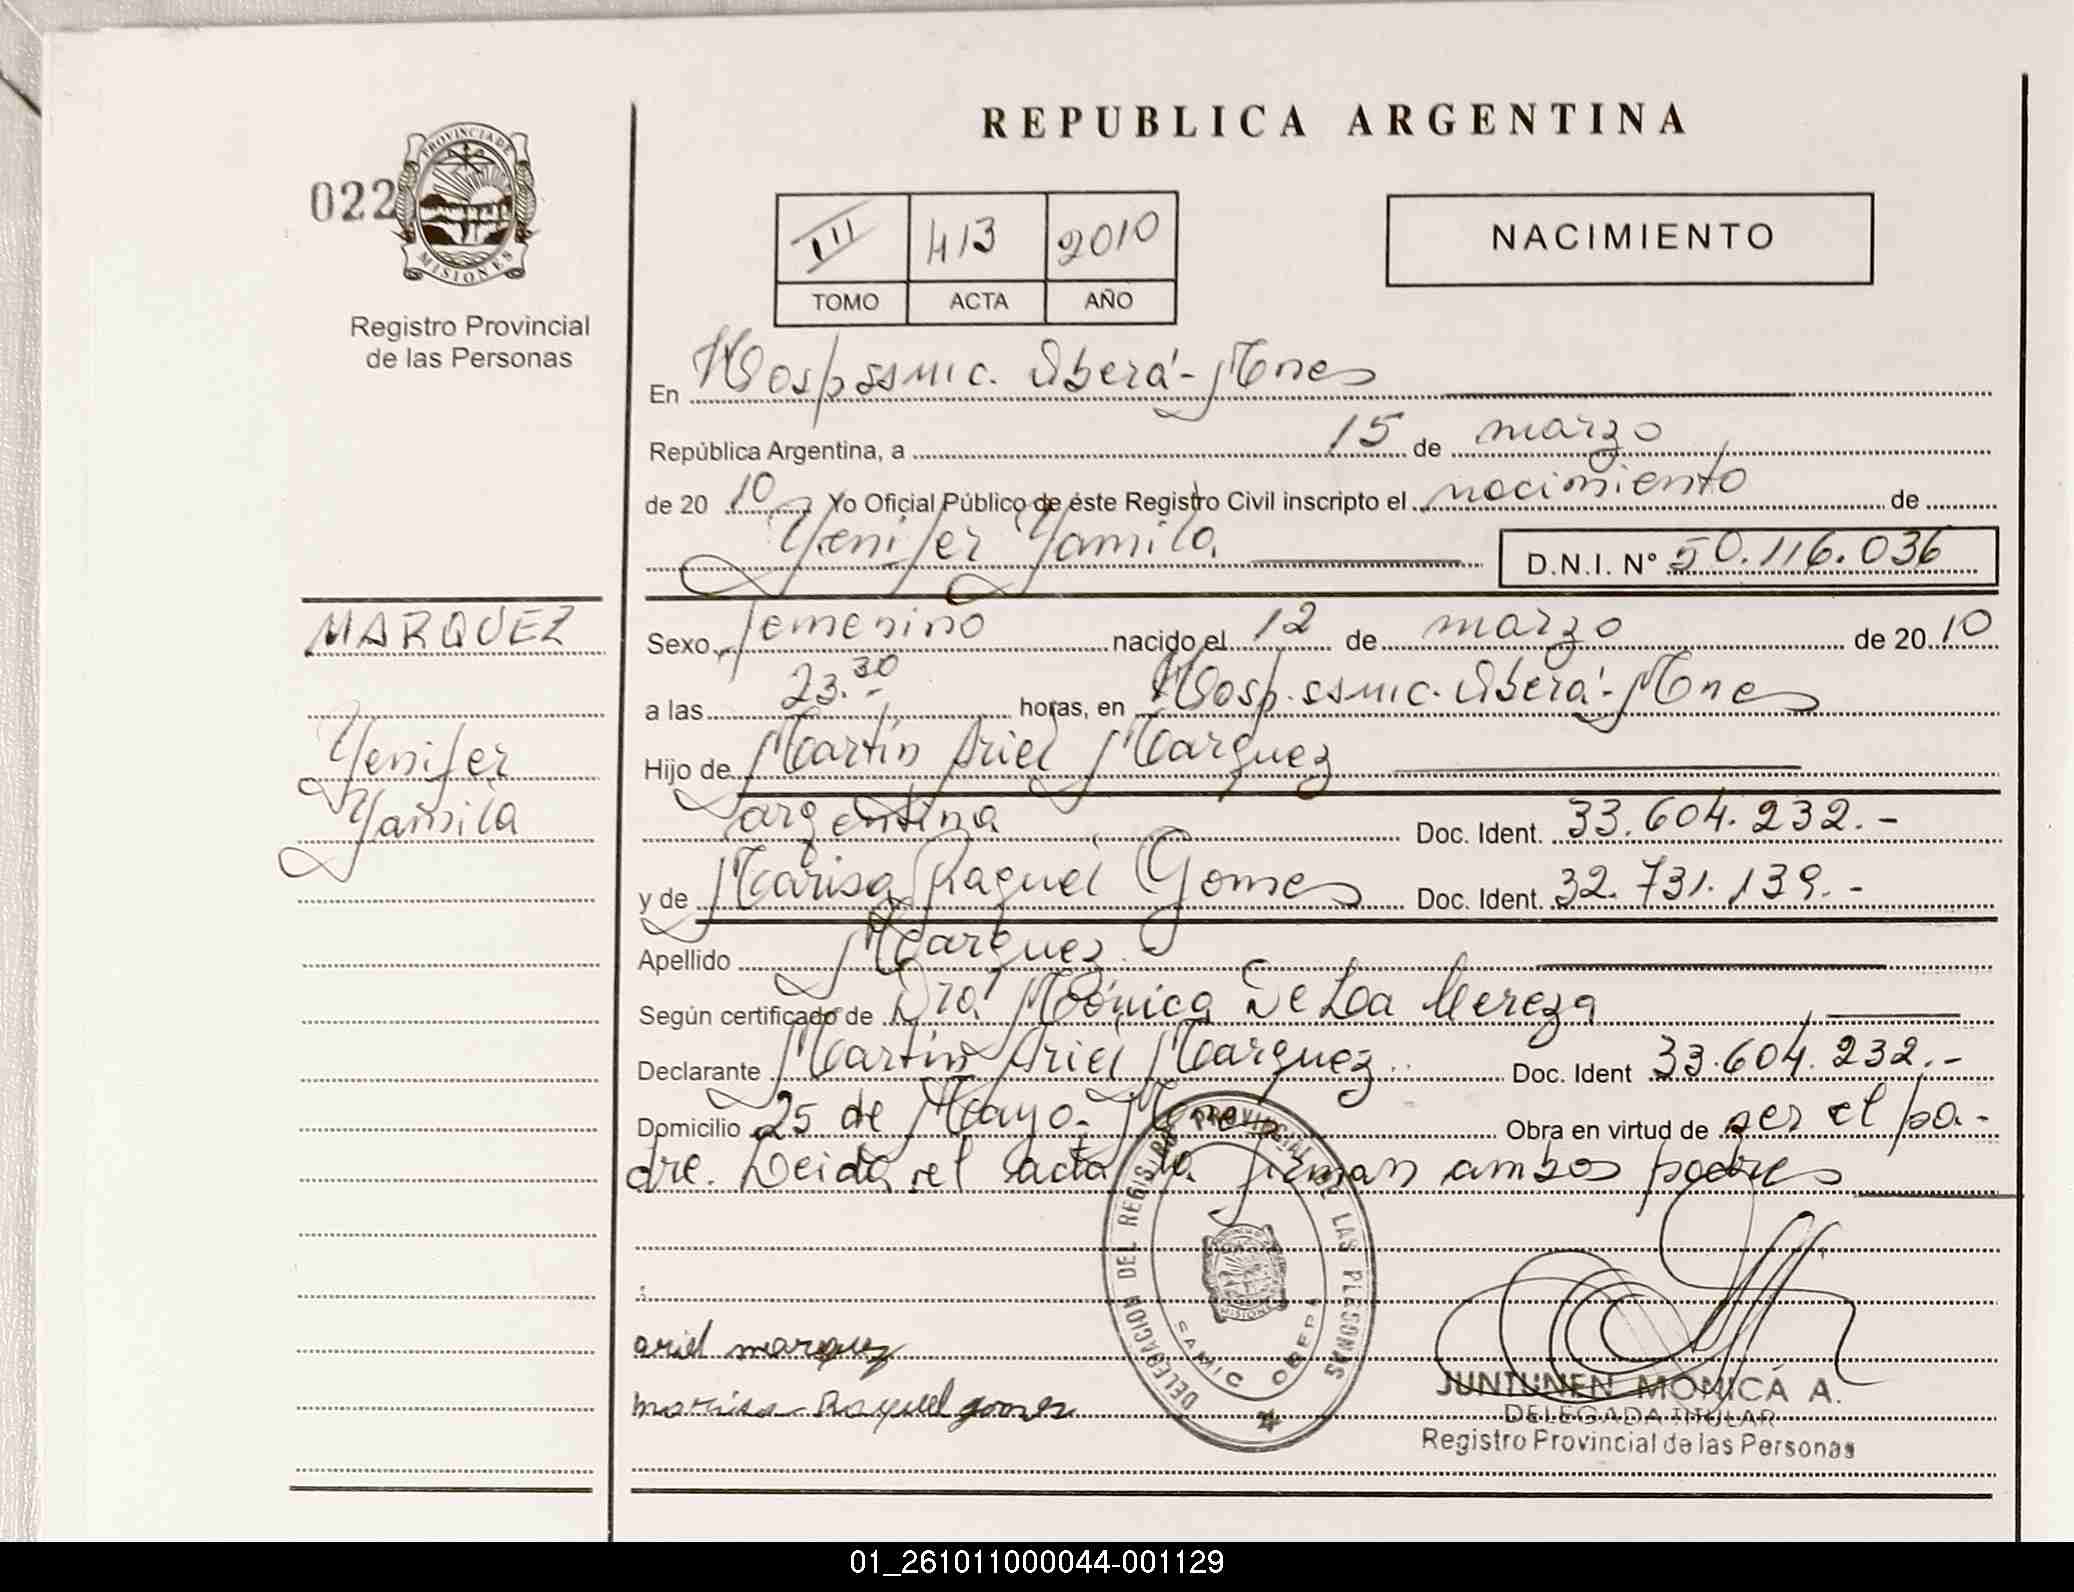 REPUBLICA ARGENTINA
022
PROVINCIA DE MISIONES
Registro Provincial
de las Personas
III 413 2010
TOMO ACTA AÑO
NACIMIENTO
En Hosp. ssmic. Oberá - Mnes
República Argentina, a 15 de marzo
de 2010 Yo Oficial Público de éste Registro Civil inscripto el nacimiento de
Yenifer Yamila D.N.I. Nº 50.116.036
MARQUEZ
Yenifer
Yamila
Sexo femenino nacido el 12 de marzo de 2010
a las 23.30 horas, en Hosp. ssmic. Oberá - Mnes
Hijo de Martín Ariel Marquez
argentina Doc. Ident. 33.604.232.-
y de Marisa Raquel Gomes Doc. Ident. 32.731.139.-
Apellido Marquez
Según certificado de Dra. Mónica De Loa
Declarante Martín Ariel Marquez Doc. Ident 33.604.232.-
Domicilio 25 de Mayo. Mnes Obra en virtud de ser el pa-
dre. Leida el acta la firman ambos padres
DELEGACION DEL REGISTRO PROVINCIAL DE LAS PERSONAS
SAMIC OBERA
MISIONES
ariel marquez
marisa Raquel gomes
JUNTUNEN MONICA A.
DELEGADA TITULAR
Registro Provincial de las Personas
01_261011000044-001129